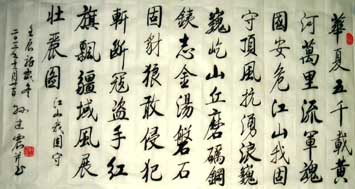 華夏五千載黄
河萬里流軍魂
國安危江山我固
守頂風抗湧浪巍
巍屹山丘磨礪鋼
鐵志金湯磐石
固豺狼敢侵犯
斬斷寇盜手紅
旗飄疆域風展
壯麗圖
江山我固守
孫建震